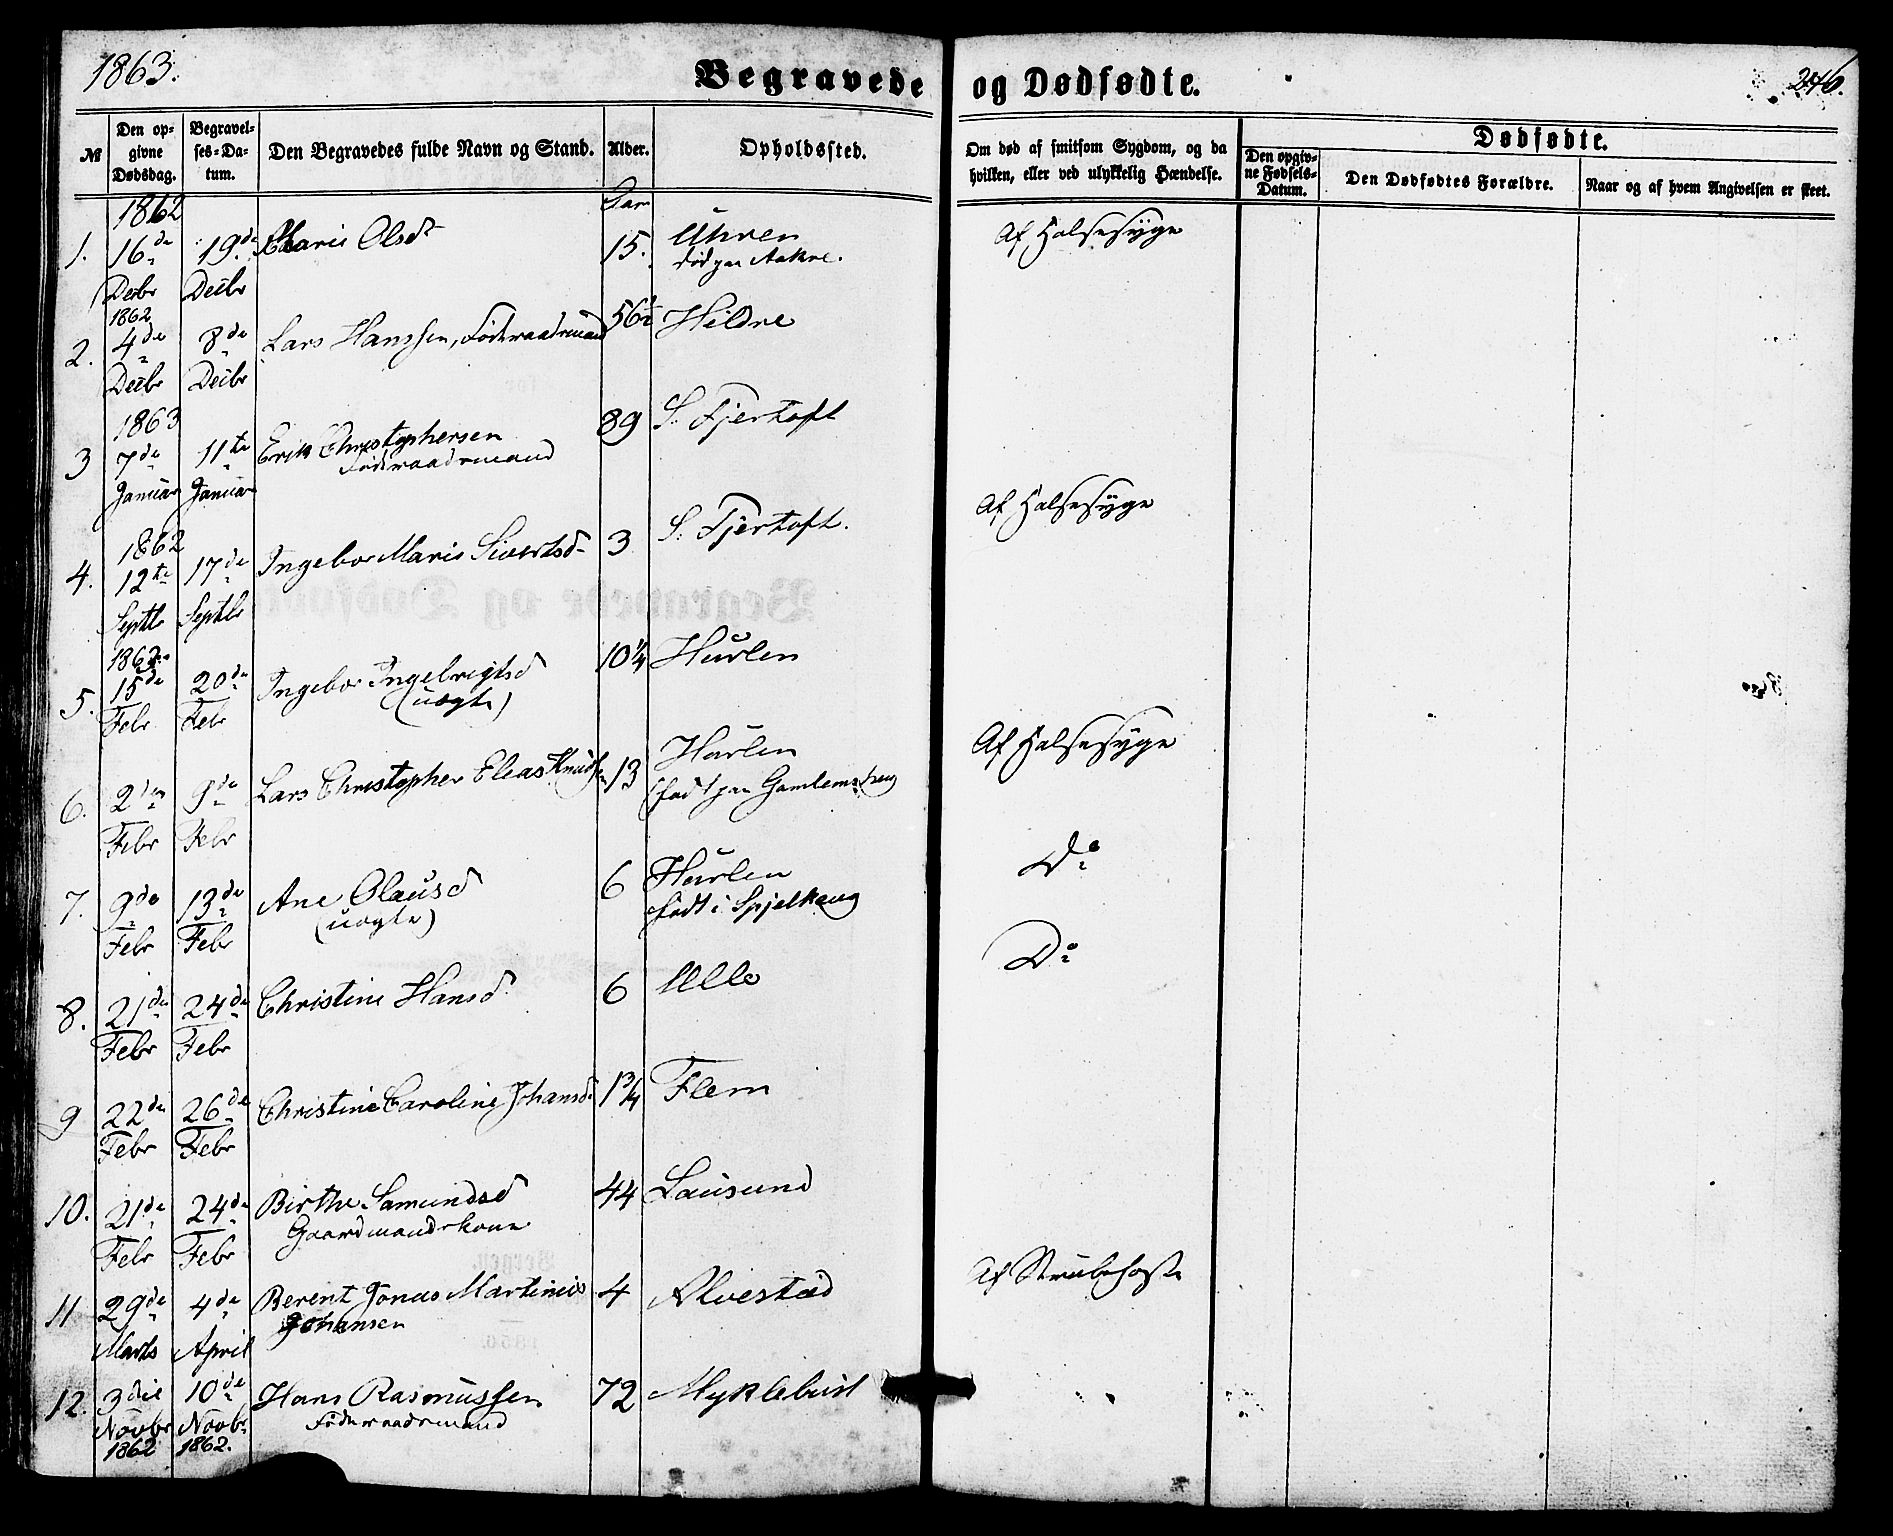 1863.
Begravede og Dødfødte.
246.
№
Den opgivne Dødsdag.
Begravelses-Datum.
Den Begravedes fulde Navn og Stand.
Alder.
Opholdssted.
Om død af smitsom Sygdom, og da hvilken, eller ved ulykkelig Hændelse.
Dødfødte.
Den opgivne Fødsels-Datum.
Den Dødfødtes Forældre.
Naar og af hvem Angivelsen er skeet.
Aar
1862
1. 16de 19de Marie Olsd 15. Uhren Af Halsesyge
Decbr Decbr død paa Aakre.
1862
2. 4de 8de Lars Hanssen, Føderaadmand 56½ Hildre
Decbr Decbr
1863
3 7de 11te Erik Christophersen 89 S. Fjertoft
Januar Januar Føderaadmand
1862
4. 12te 17de Ingebor Marie Sivertsd 3 S. Fjertoft. Af Halsesyge
Septb Septb
1863
5. 15de 20de Ingebor Ingebrigtsd 10¼ Hurlen
Febr Febr (uægte)
6. 2den 9de Lars Christopher Elias Knudsen 13 Hurlen Af Halsesyge
Febr Febr født paa
7. 9de 13de Ane Olausd 6 Hurlen Do
Febr Febr (uægte) født i Spjelkavig
8. 21de 24de Christine Hansd 6 Ulle Do
Febr Febr
9 22de 26de Christine Caroline Johansd 1¾ Flem
Febr Febr
10. 21de 24de Birthe Samundsd 44 Lausund
Febr Febr Gaardmandskone
11 29de 4de Berent Jonas Martinus 4 Alvestad Af Strubehoste
Marts April Johansen
12. 3die 10de Hans Rasmussen 72 Myklebust
Novbr Novbr Føderaadmand
1862 1862.